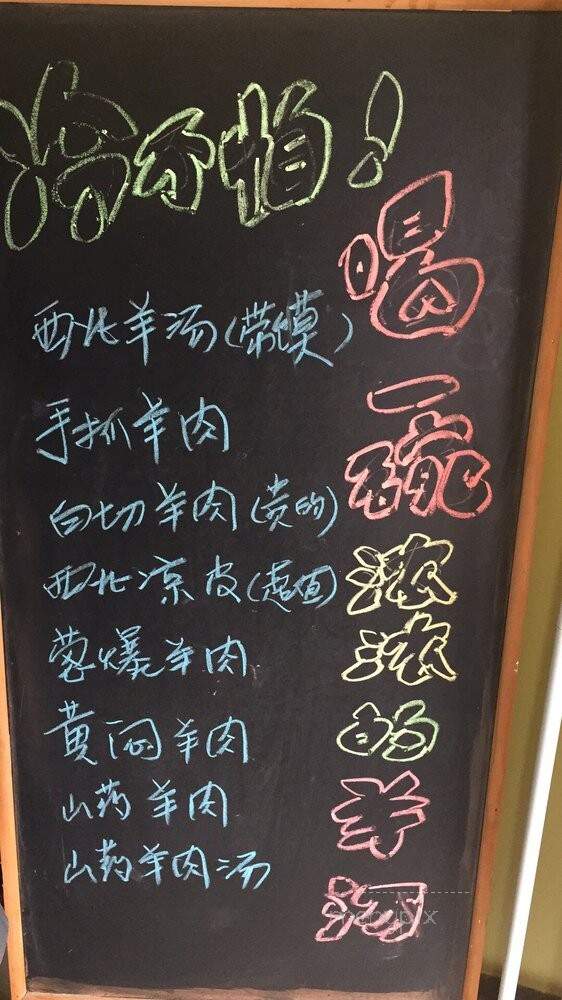 冷不怕!
喝一碗浓浓的羊汤
西北羊汤(带馍)
手抓羊肉
白切羊肉(贵的)
西北凉皮(超值)
葱爆羊肉
黄焖羊肉
山药羊肉
山药羊肉汤
menupix